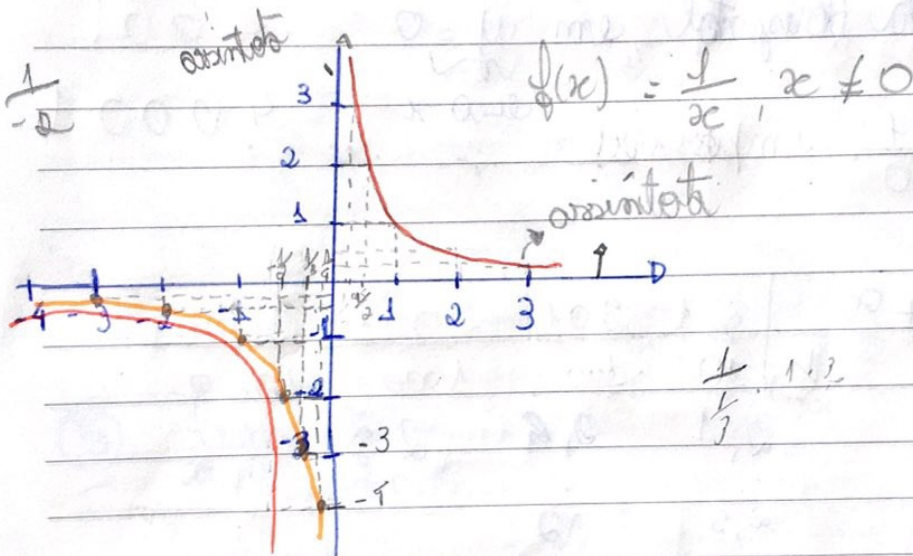 assíntota
1/-2
f(x) = 1/x, x ≠ 0
3
2
1
assíntota
-4 -3 -2 -1
1/2 1 2 3
-1
-2
-3 -3
1/(1/3) 1·3